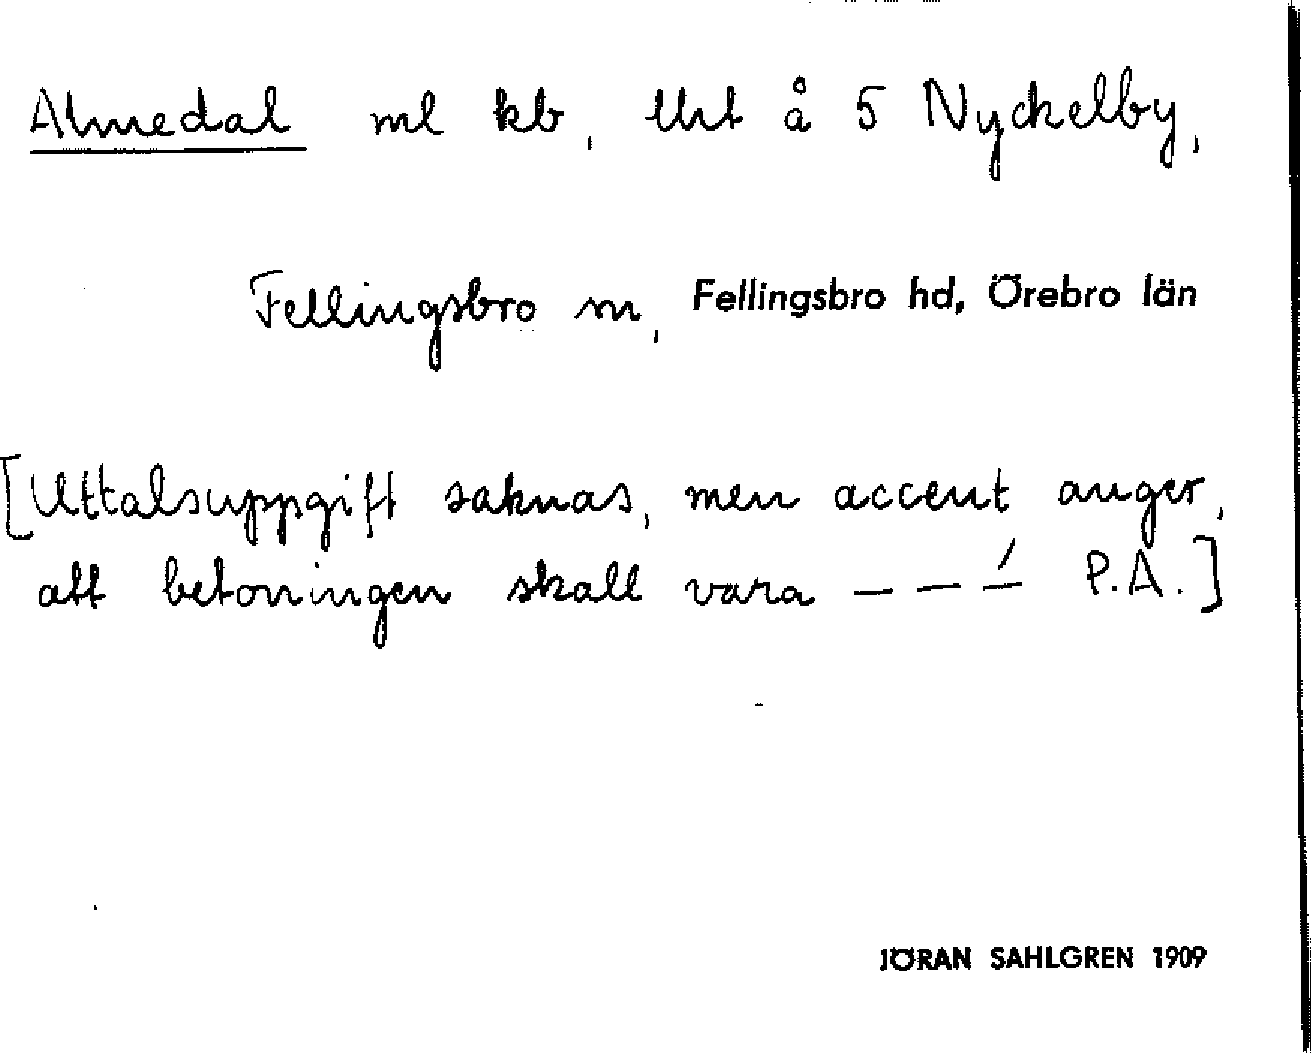 Almedal ml kb, Uht å 5 Nyckelby,
Fellingsbro sn, Fellingsbro hd, Örebro län
[Uttalsuppgift saknas, men accent anger,
att betoningen skall vara _ _ _́ P.A.]
JÖRAN SAHLGREN 1909